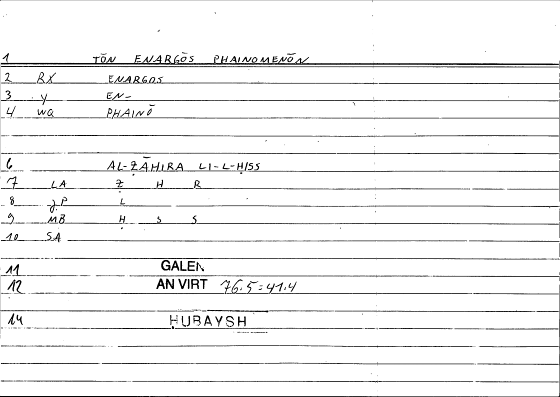 1 TŌN ENARGŌS PHAINOMENŌN
2 RX ENARGOS
3 y EN-
4 wa PHAINŌ
6 AL-ẒĀHIRA LI-L-ḤISS
7 LA Ẓ H R
8 jP L
9 MB Ḥ S S
10 SA
11 GALEN
12 AN VIRT 76.5:41.4
14 ḤUBAYSH